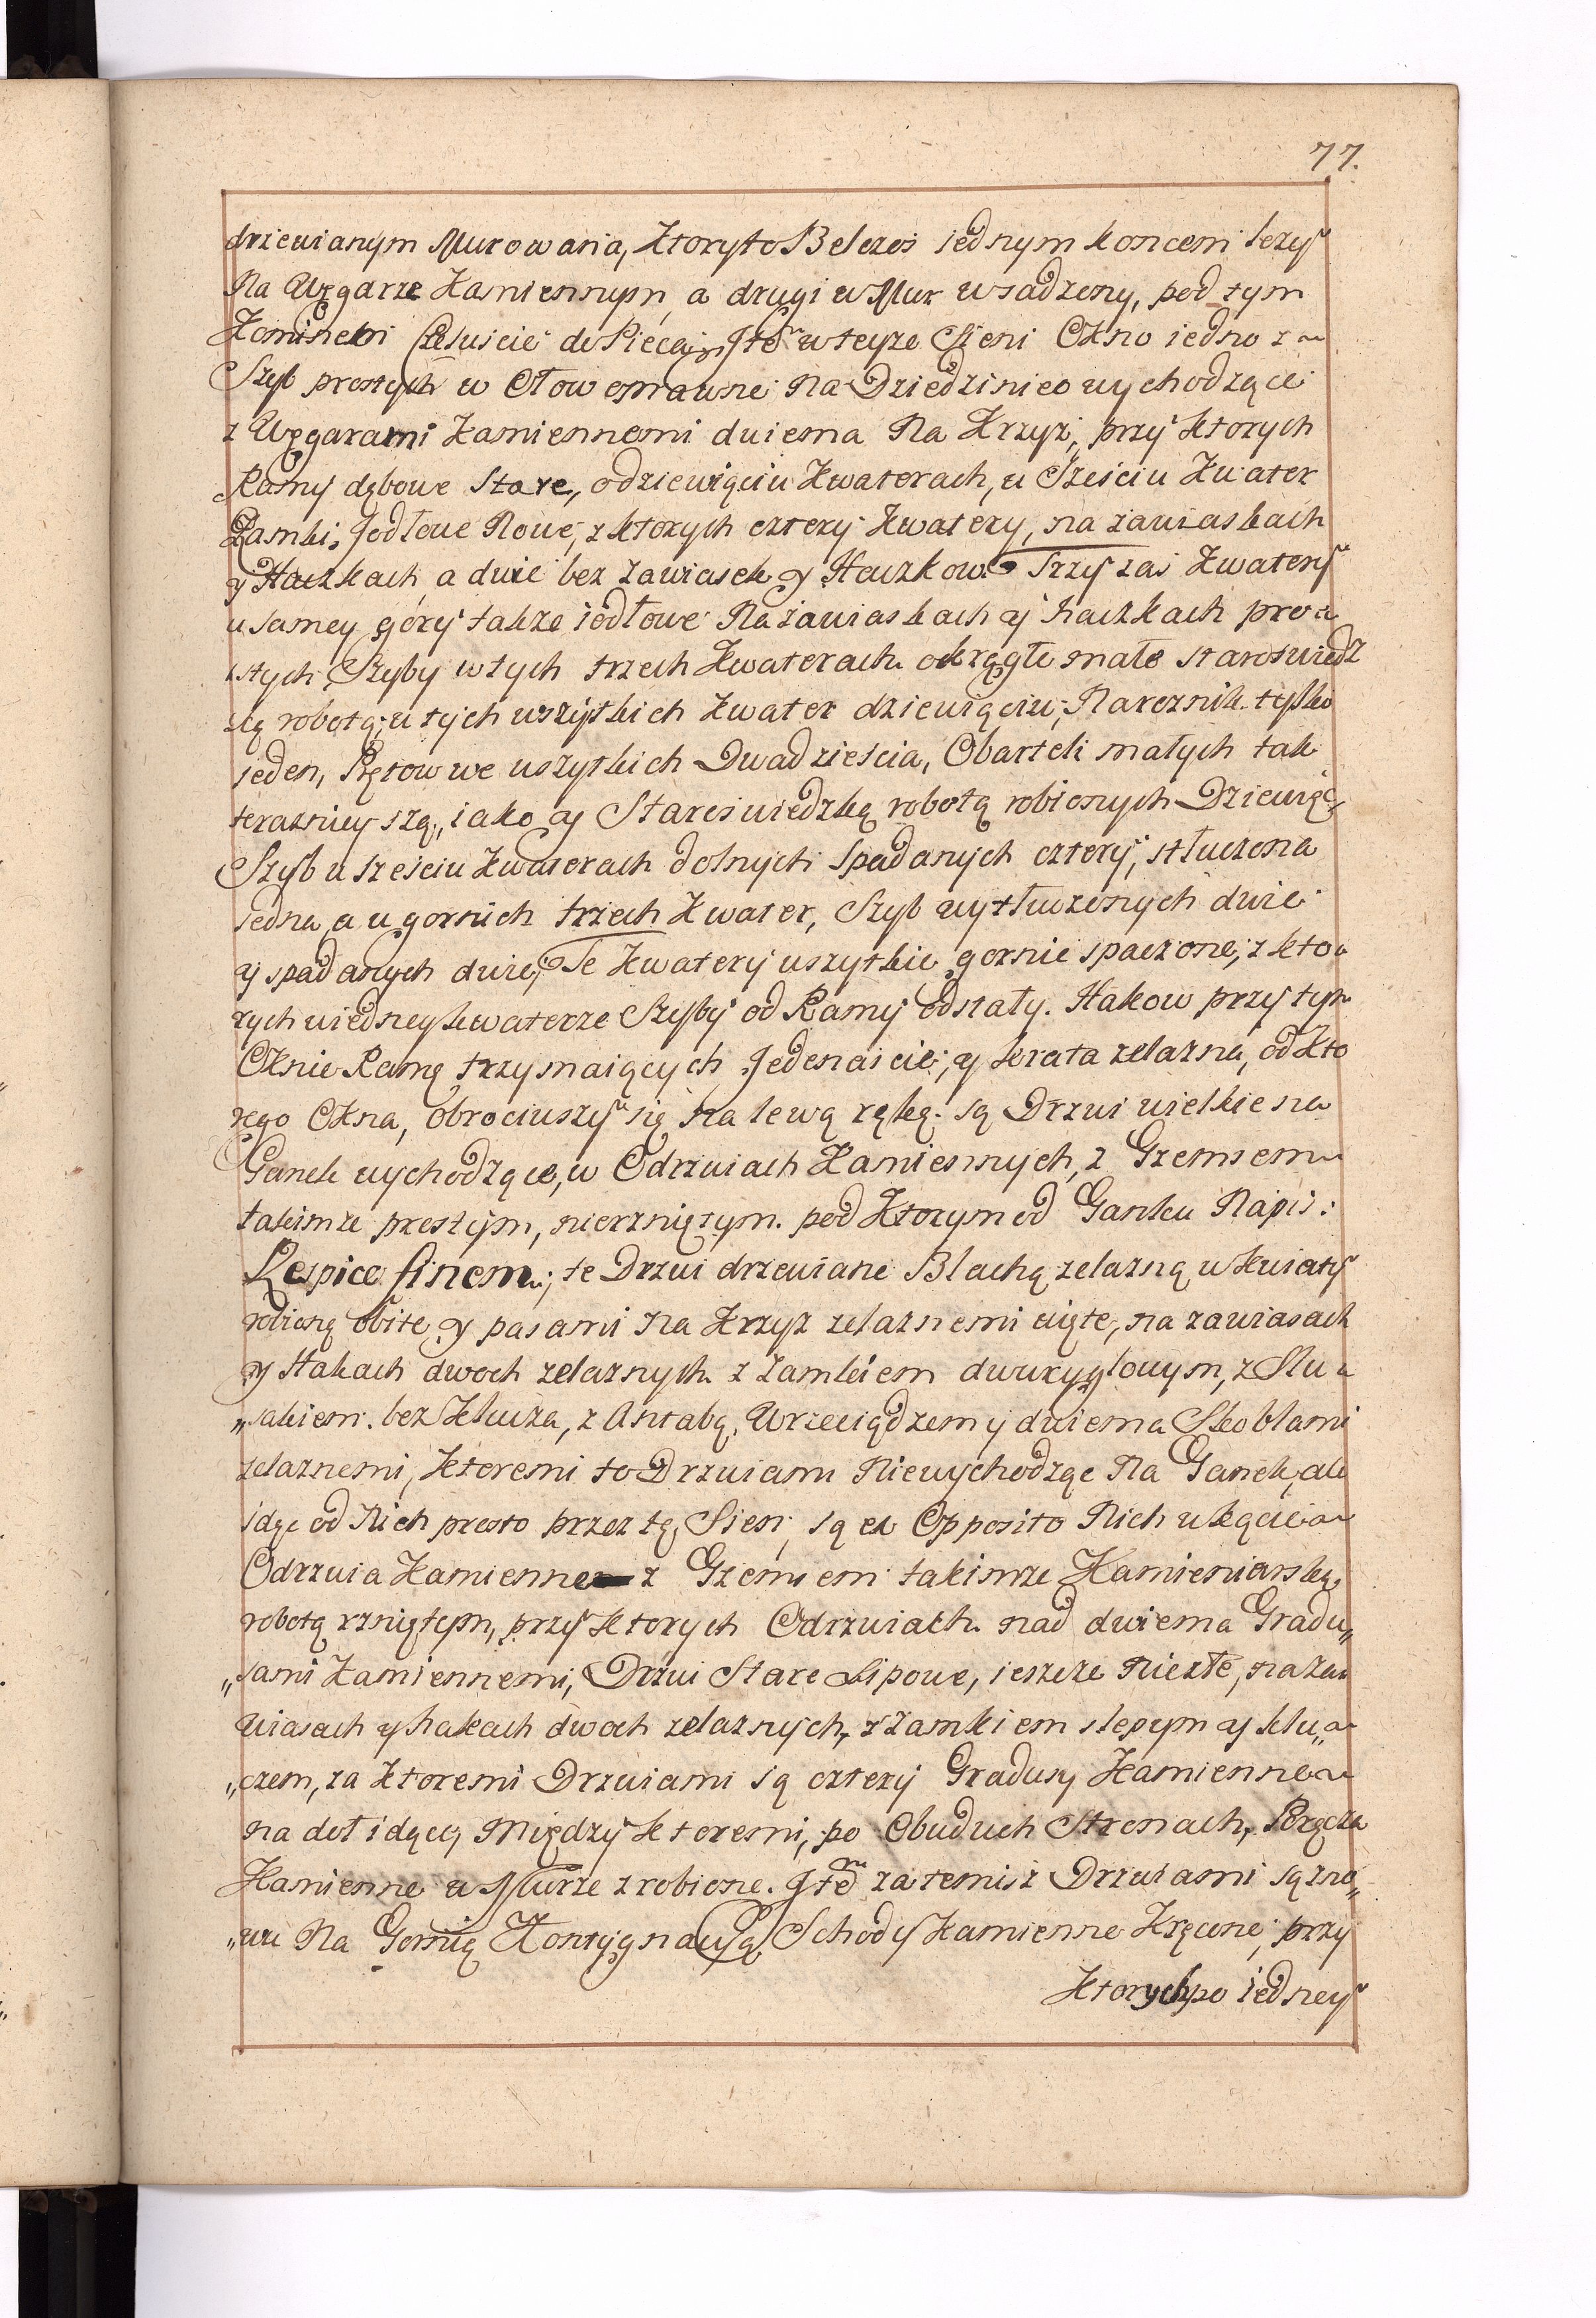 77.
drzewianym Murowana, Ktoryto Belczoś iednym koncem leży
Na Węgarze Kamiennym, a drugi w Mur wsadzony, pod tym
Kominem Czeluście do Pieca; Itē w teyże Sieni Okno iedno z
Szyb prostych w Ołow oprawne Na Dziedziniec wychodzące
z Węgarami Kamiennemi dwiema Na Krzyż, przy ktorych
Ramy dębowe Stare, o dziewięciu Kwaterach, u Sześciu Kwater
Ramki Jodłowe Nowe, z ktorych cztery Kwatery, na zawiaskach
y Haczkach, a dwie bez zawiasek y Haczkow. Trzy zaś Kwatery
u samey gory także iodłowe Na zawiaskach y haczkach pro
stych Szyby w tych trzech Kwaterach okrągłe małe staroswiedz
ką robotą; u tych wszystkich Kwater dziewięciu; Narożnik tylko
ieden, Prętow we wszytkich Dwadzieścia, Obartek małych tak
teraznieyszą, iako y Staroswiedzką robotą robionych Dziewięć,
Szyb u sześciu Kwaterach dolnych spadanych cztery, stłuczona
iedna, a u gornich trzech Kwater, Szyb wytłuczonych dwie
y spadanych dwie, Te Kwatery wszytkie gornie spaczone, z kto
rych w iedney kwaterze Szyby od Ramy odstały. Hakow przy tym
Oknie Ramę trzymaiących Jedenaście; y krata żelazna, od kto
rego Okna, obrociwszy się na lewą rękę są Drzwi wielkie na
Ganek wychodzące, w Odrzwiach Kamiennych, z Gzemsem
takimże prostym, nierzniętym. pod Ktorym od Ganku Napis:
Respice finem; te Drzwi drzewiane Blachą żelazną w kwiaty
robioną obite y pasami na Krzyż żelaznemi cięte, na zawiasach
y Hakach dwoch żelaznych z zamkiem dwuryglowym, z Slu
„sakiem. bez Klucza, z Antabą, Wrzeciądzem y dwiema Skoblami
żelaznemi, ktoremi to Drzwiami Niewychodząc Na Ganek, ale
idąc od Nich prosto przez tę Sień, są ex Opposito Nich w kącie
Odrzwia Kamienne z Gzemsem takimże Kamieniarską
robotą rzniętym, przy ktorych Odrzwiach nad dwiema Gradu„
„sami Kamiennemi, Drzwi Stare Lipowe, ieszcze Niezłe, na za
wiasach y hakach dwoch żelaznych, z zamkiem slepym y klu„
„czem, za Ktoremi Drzwiami są cztery Gradusy Kamienne
na doł idące, Między ktoremi, po Obuduch Stronach, Poręcza
Kamienne w Murze zrobione. Itē za temiż Drzwiami są zno„
„wu Na Gornią Kontygnacyą Schody Kamienne Kręcone, przy
Ktorych po iedney